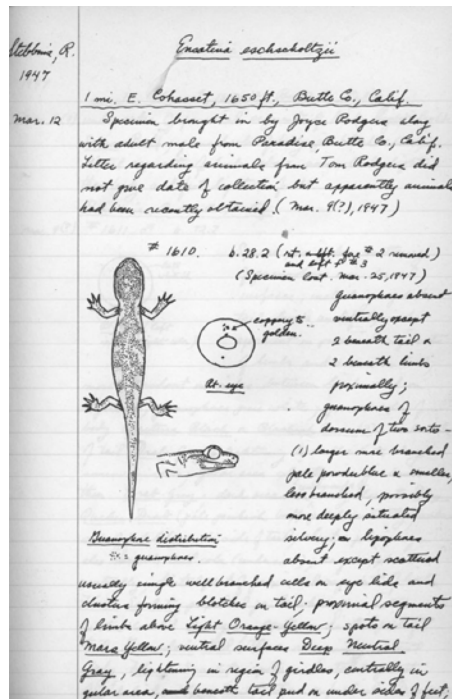 Stebbins, R.
1947
Ensatina eschscholtzii
1 mi. E. Cohasset, 1650 ft., Butte Co., Calif.
Mar. 12
Specimen brought in by Joyce Rodgers along
with adult male from Paradise, Butte Co., Calif.
Letter regarding animals from Tom Rodgers did
not give date of collection but apparently animals
had been recently obtained. (Mar. 9(?), 1947)
# 1610.
6-28.2 (rt. & left fore # 2 removed)
and left # 3
(Specimen lost Mar. 25, 1947)
coppery to
golden.
Rt. eye
guanophores absent
ventrally except
2 beneath tail &
2 beneath limbs
proximally;
guanophores of
dorsum of two sorts -
(1) larger more branched
pale powder blue & smaller,
less branched, possibly
more deeply situated
silvery; lipophores
absent except scattered
Guanophore distribution
= guanophores.
usually single well branched cells on eye lids and
clusters forming blotches on tail; proximal segments
of limbs above Light Orange-Yellow; spots on tail
Mars Yellow; ventral surfaces Deep Neutral
Gray, lightening in region of girdles, centrally in
gular area, beneath tail and on under sides of feet,